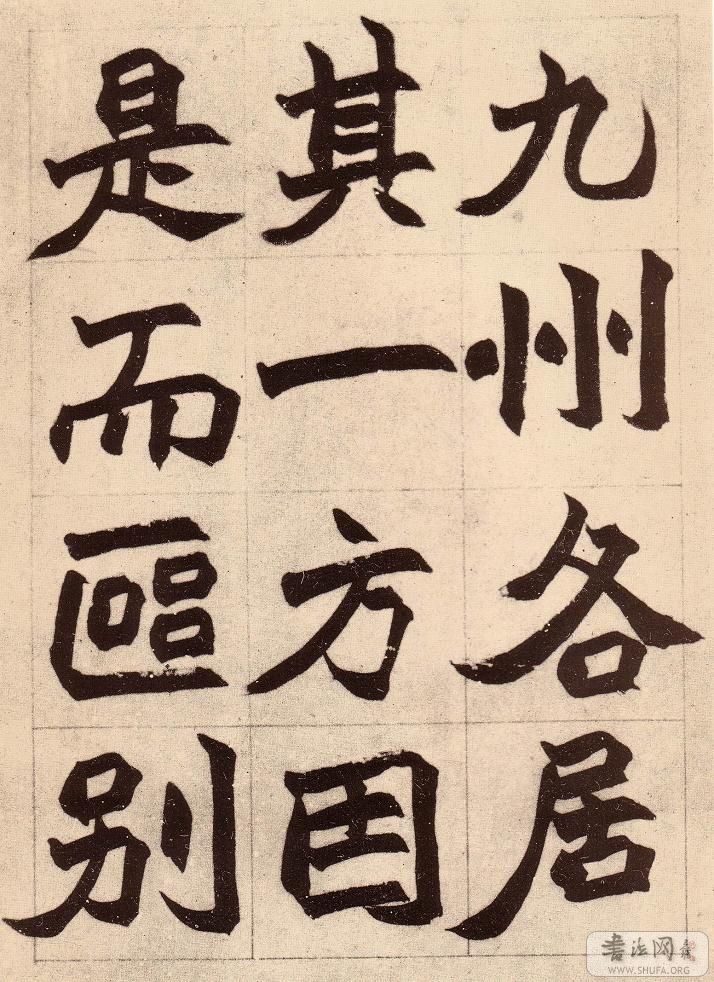 九州各居
其一方因
是而區别
書法网
WWW.SHUFA.ORG